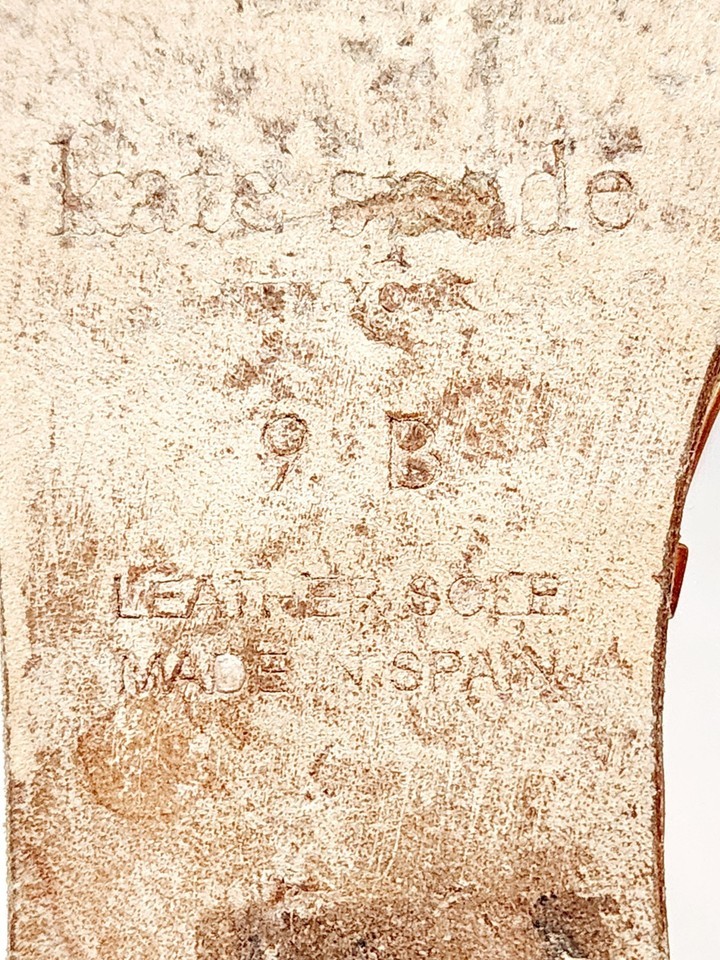 kate spade
9 B
LEATHER SOLE
MADE IN SPAIN